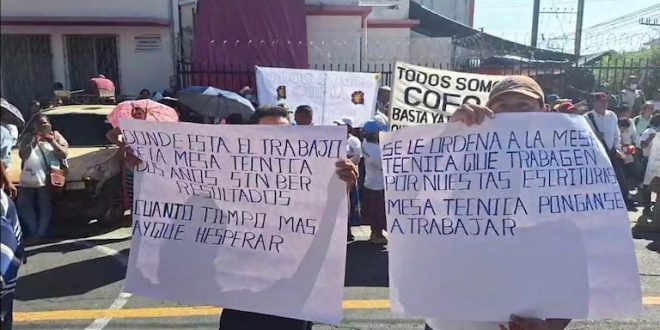 DONDE ESTA EL TRABAJO
DE LA MESA TECNICA
DOS AÑOS SIN BER
RESULTADOS
CUANTO TIEMPO MAS
AY QUE HESPERAR
SE LE ORDENA A LA MESA
TECNICA QUE TRABAGEN
POR NUESTAS ESCRITURAS
MESA TECNICA PONGANSE
A TRABAJAR
TODOS SOM
COFO
BASTA YA